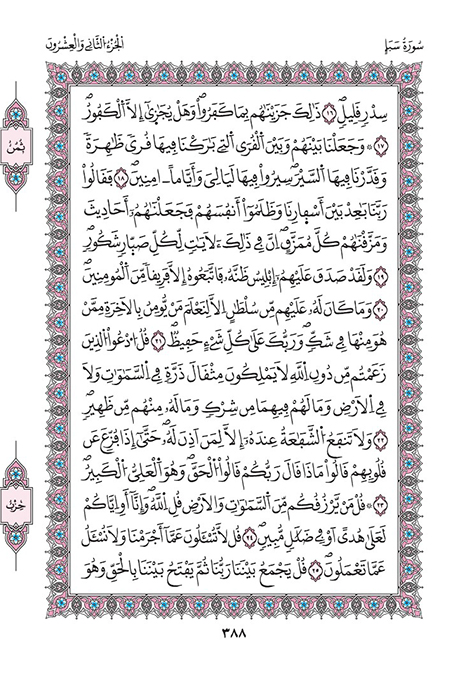 سُورَةُ سَبَإٖ
اَلْجُزْءُ الثَّانِي وَالْعِشْرُونَ
سِدْرٖ قَلِيلٖۖ ١٦ ذَٰلِكَ جَزَيْنَٰهُم بِمَا كَفَرُواْۖ وَهَلْ يُجَٰزَىٰٓ إِلَّا اَ۬لْكَفُورُۖ
١٧ ۞ وَجَعَلْنَا بَيْنَهُمْ وَبَيْنَ اَ۬لْقُرَى اَ۬لتِے بَٰرَكْنَا فِيهَا قُرىٗ ظَٰهِرَةٗ
وَقَدَّرْنَا فِيهَا اَ۬لسَّيْرَۖ سِيرُواْ فِيهَا لَيَالِيَ وَأَيَّاماً اٰمِنِينَۖ ١٨ فَقَالُواْ
رَبَّنَا بَٰعِدْ بَيْنَ أَسْفَارِنَا وَظَلَمُوٓاْ أَنفُسَهُمْ فَجَعَلْنَٰهُمُۥٓ أَحَادِيثَ
وَمَزَّقْنَٰهُمْ كُلَّ مُمَزَّقٍۖ اِنَّ فِے ذَٰلِكَ ءَلَأيَٰتٖ لِّكُلِّ صَبّ۪ارٖ شَكُورٖۖ
١٩ وَلَقَدْ صَدَقَ عَلَيْهِمُۥٓ إِبْلِيسُ ظَنَّهُۥ فَاتَّبَعُوهُ إِلَّا فَرِيقاٗ مِّنَ اَ۬لْمُومِنِينَۖ
٢٠ وَمَا كَانَ لَهُۥ عَلَيْهِم مِّن سُلْطَٰنٍ اِلَّا لِنَعْلَمَ مَنْ يُّومِنُ بِالَاخِرَةِ مِمَّنْ
هُوَ مِنْهَا فِے شَكّٖۖ وَرَبُّكَ عَلَىٰ كُلِّ شَےْءٍ حَفِيظٞۖ ٢١ قُلُ اُ۟دْعُواْ اُ۬لذِينَ
زَعَمْتُم مِّن دُونِ اِ۬للَّهِ لَا يَمْلِكُونَ مِثْقَالَ ذَرَّةٖ فِے اِ۬لسَّمَٰوَٰتِ وَلَا
فِے اِ۬لَارْضِ وَمَا لَهُمْ فِيهِمَا مِن شِرْكٖ وَمَا لَهُۥ مِنْهُم مِّن ظَهِيرٖۖ
٢٢ وَلَا تَنفَعُ اُ۬لشَّفَٰعَةُ عِندَهُۥٓ إِلَّا لِمَنَ اَذِنَ لَهُۥۖ حَتَّىٰٓ إِذَا فُزِّعَ عَن
قُلُوبِهِمْ قَالُواْ مَاذَا قَالَ رَبُّكُمْ قَالُواْ اُ۬لْحَقَّۖ وَهُوَ اَ۬لْعَلِيُّ اُ۬لْكَبِيرُۖ
٢٣ ۞ قُلْ مَنْ يَّرْزُقُكُم مِّنَ اَ۬لسَّمَٰوَٰتِ وَالَارْضِ قُلِ اِ۬للَّهُۖ وَإِنَّآ أَوِ اِيَّاكُمْ
لَعَلَىٰ هُدىً اَوْ فِے ضَلَٰلٖ مُّبِينٖۖ ٢٤ قُل لَّا تُسْـَٔلُونَ عَمَّآ أَجْرَمْنَا وَلَا نُسْـَٔلُ
عَمَّا تَعْمَلُونَۖ ٢٥ قُلْ يَجْمَعُ بَيْنَنَا رَبُّنَا ثُمَّ يَفْتَحُ بَيْنَنَا بِالْحَقِّ وَهُوَ
ثُمُنٌ
حِزْبٌ
٣٨٨